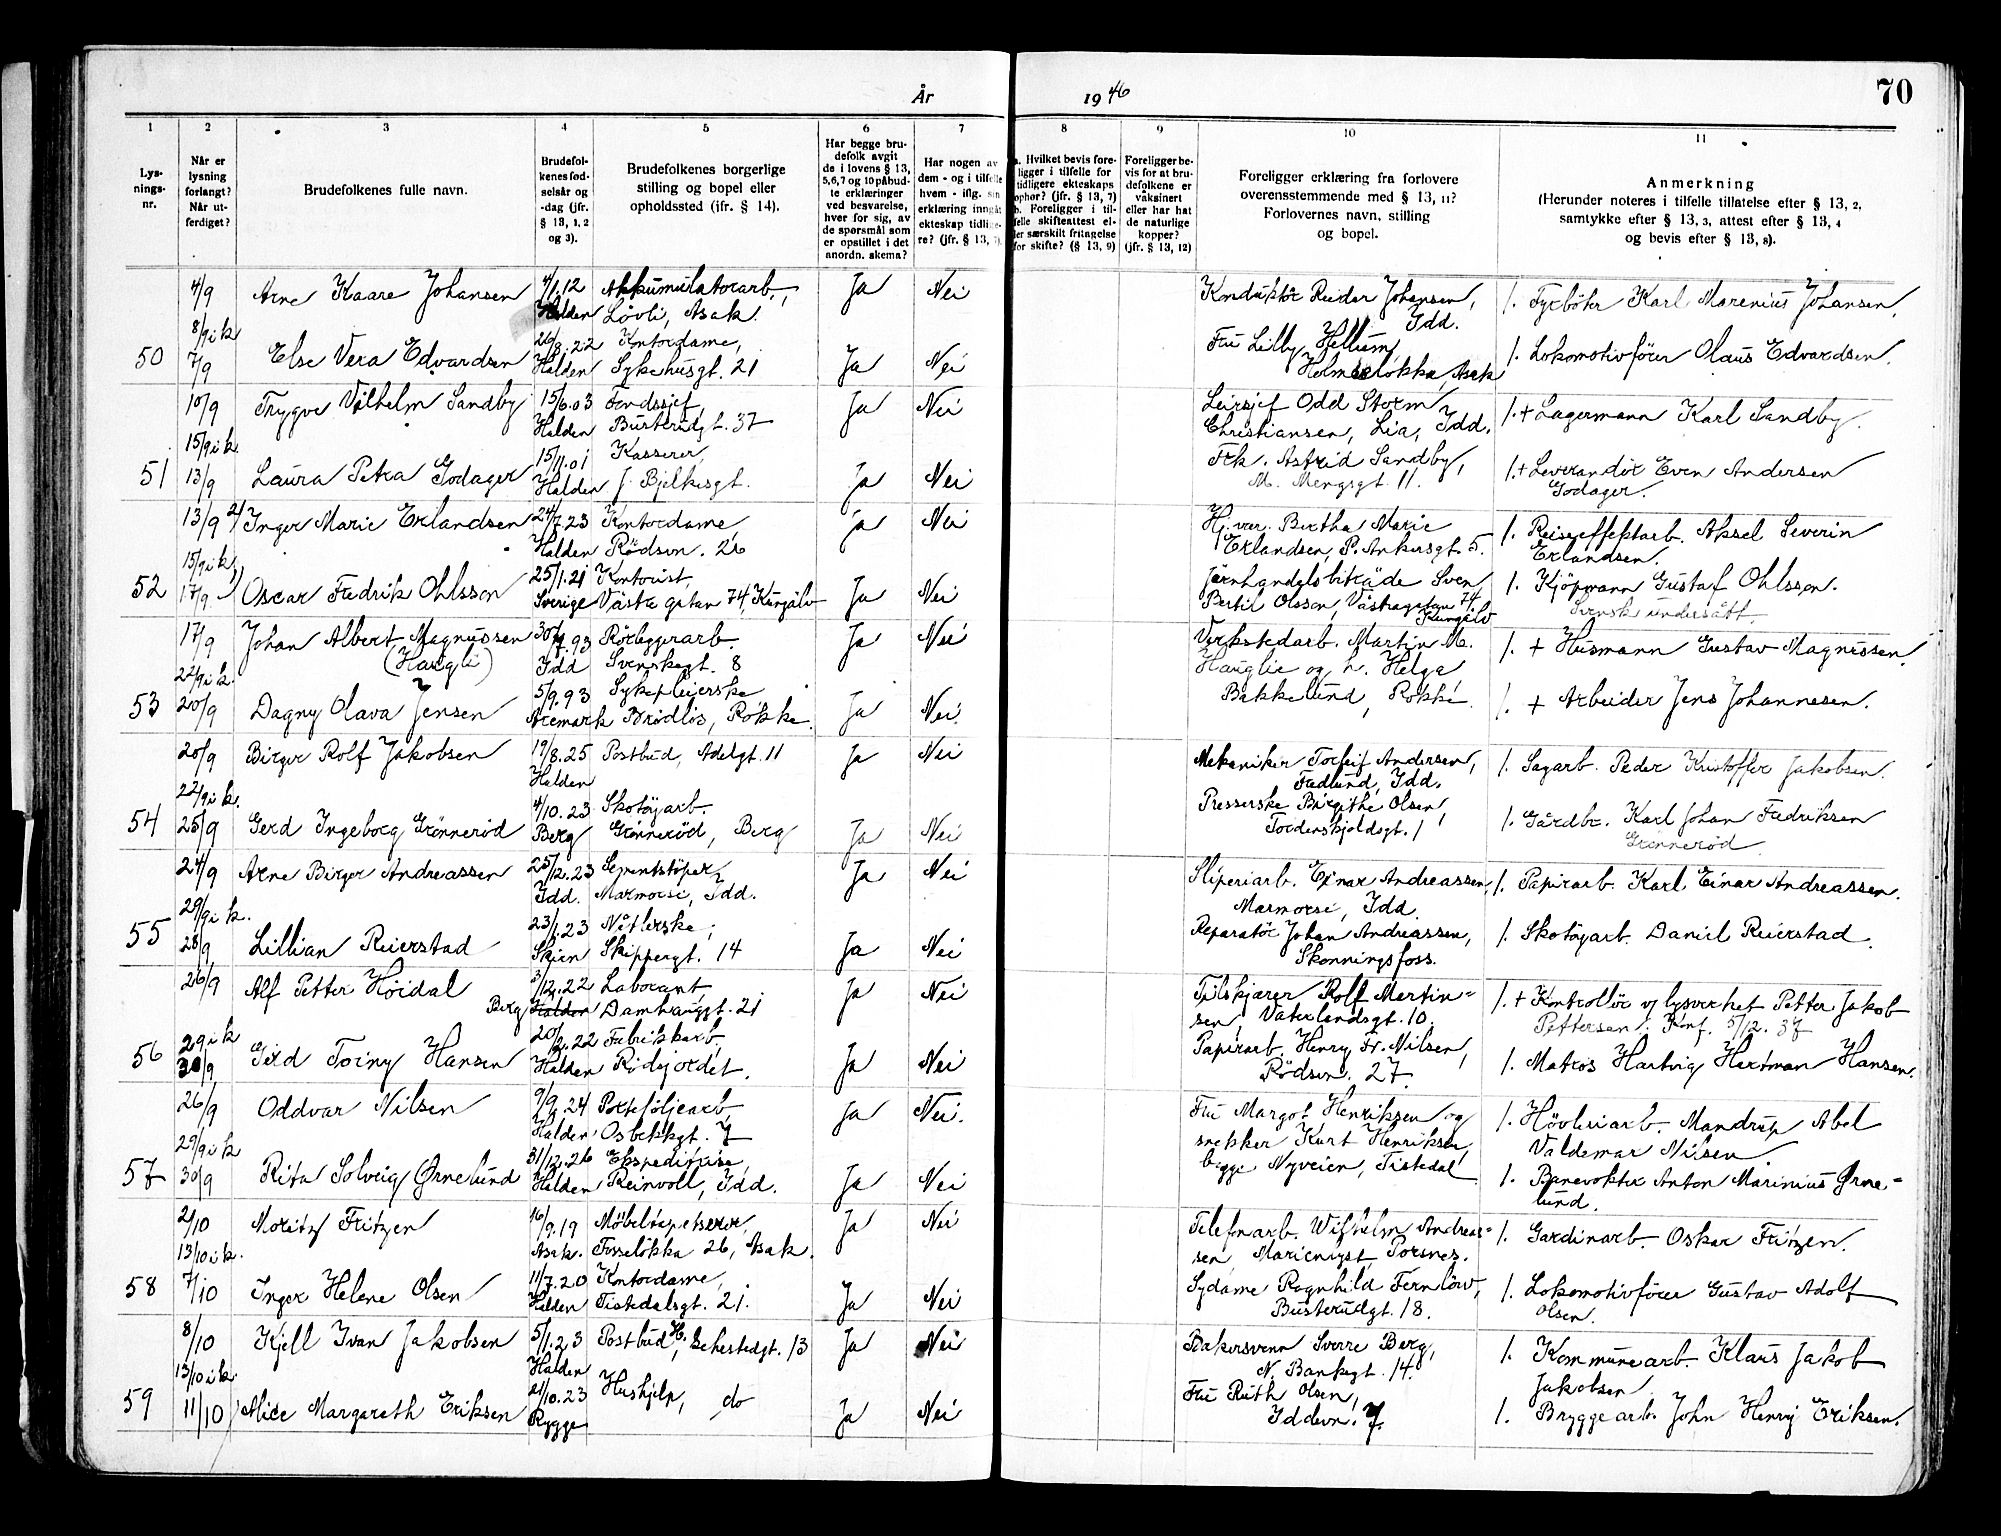 År 1946
70
1 2 3 4 5 6 7 8 9 10 11
Lys-
nings-
nr.
Når er
lysning
forlangt?
Når ut-
ferdiget?
Brudefolkenes fulle navn.
Brudefol-
kenes fød-
selsår og
-dag (jfr.
§ 13, 1, 2
og 3).
Brudefolkenes borgerlige
stilling og bopel eller
opholdssted (jfr. § 14).
Har begge bru-
defolk avgit
de i lovens § 13,
5,6,7 og 10 påbud-
te erklæringer
ved besvarelse,
hver for sig, av
de spørsmål som
er opstillet i det
anordn. skema?
Har nogen av
dem - og i tilfelle
hvem - iflg. sin
erklæring inngåt
ekteskap tidlige-
re? (jfr. § 13, 7).
a. Hvilket bevis fore-
ligger i tilfelle for
tidligere ekteskaps
ophør? (jfr. § 13, 7)
b. Foreligger i til-
felle skifteattest el-
ler særskilt fritagelse
for skifte? (§ 13, 9)
Foreligger be-
vis for at bru-
defolkene er
vaksinert
eller har hat
de naturlige
kopper?
(jfr. § 13, 12)
Foreligger erklæring fra forlovere
overensstemmende med § 13, 11?
Forlovernes navn, stilling
og bopel.
Anmerkning
(Herunder noteres i tilfelle tillatelse efter § 13, 2,
samtykke efter § 13, 3, attest efter § 13, 4
og bevis efter § 13, 8).
4/9 Arne Kaare Johansen 4/1.12 Akkumulatorarb., Ja Nei Konduktør Reidar Johansen, 1. Fyrbøter Karl Marenius Johansen.
8/9 i k. Halden Løvli, Asak. Idd.
26/8.22 Kontordame, Fru Lilly Hellum,
50 7/9 Else Vera Edvardsen Halden Sykehusgt. 21 Ja Nei Holmsløkka, Asak 1. Lokomotivfører Olaus Edvardsen.
10/9 Trygve Vilhelm Sandby 15/6.03 Fondssjef, Ja Nei Leirsjef Odd Storm 1. + Lagermann Karl Sandby.
15/9 i k. Halden Busterudgt. 37 Christiansen, Lia, Idd.
15/11.01 Kasserer, Frk. Astrid Sandby,
51 13/9 Laura Petra Godager Halden J. Bjelkesgt. Ja Nei M. Mengsgt. 11. 1. + Leverandør Even Andersen
Godager.
13/9 2) Inger Marie Erlandsen 24/7.23 Kontordame Ja Nei Hj.var. Bertha Marie 1. Reiseeffektarb. Aksel Severin
15/9 i k. Halden Rødsvn. 26 Erlandsen, P. Ankersgt. 5. Erlandsen.
25/1.21 Kontorist, Järnhandelsbiträde Sven
52 17/9 1) Oscar Fredrik Ohlsson Sverige Västra gatan 74, Kungälv Ja Nei Bertil Olsson, Västragatan 74, 1. Kjøpmann Gustaf Ohlsson.
Kungälv Svensk undersått.
17/9 Johan Albert Magnussen 30/7.93 Rørleggerarb. Ja Nei Verkstedarb. Martin M. 1. + Husmann Gustav Magnussen.
22/9 i k. (Hauglie) Idd Svenskegt. 8 Hauglie og h. Helga
5/9.93 Sykepleierske
53 20/9 Dagny Olava Jensen Aremark Brødløs, Rokke. Ja Nei. Bakkelund, Rokke. 1. + Arbeider Jens Johannesen.
20/9 Birger Rolf Jakobsen 19/8.25 Postbud, Adelgt. 11 Ja Nei Mekaniker Torleif Andersen, 1. Sagarb. Peder Kristoffer Jakobsen.
22/9 i k. Halden Fredlund, Idd.
4/10.23 Skotøyarb. Presserske Birgithe Olsen,
54 25/9 Gerd Ingeborg Grønnerød Berg Grønnerød, Berg Ja Nei Tordenskjoldsgt. 1 1. Gårdbr. Karl Johan Fredriksen
Grønnerød
24/9 Arne Birger Andreassen 25/12.23 Sementstøper, Ja Nei Sliperiarb. Einar Andreassen, 1. Papirarb. Karl Einar Andreassen.
29/9 i k. Idd. Marmorsi, Idd. Marmorsi, Idd.
23/1.23 Nåtlerske, Reparatør Johan Andreassen,
55 28/9 Lillian Reierstad Skien Skippergt. 14 Ja Nei Skonningsfoss. 1. Skotøyarb. Daniel Reierstad.
26/9 Alf Petter Høidal 3/12.22 Laborant, Ja Nei Tilskjærer Rolf Martin= 1. + Kontrollør v/ lysverket Petter Jakob
Berg Halden Damhauggt. 21 sen, Vaterlandsgt. 10. Pettersen. Konf. 5/12. 37
29 i k. 20/2.22 Fabrikkarb., Papirarb. Henry Fr. Nilsen,
56 30/9 Gerd Torny Hansen Halden Rødsjordet. Ja Nei Rødsvn. 27. 1. Matros Hartvig Hartman Hansen.
26/9 Oddvar Nilsen 9/9.24 Porteføljearb. Ja Nei. Fru Margot Henriksen og 1. Høvleriarb. Mandrup Abel
29/9 i k Halden Osbekkgt. 7 snekker Kurt Henriksen, Valdemar Nilsen
31/12.26 Ekspeditrise,
57 30/9 Rita Solveig Ørnelund Halden Reinvoll, Idd. Ja Nei begge Nyveien, Tistedal 1. Banevokter Anton Marinius Ørne=
lund.
2/10 Moritz Fritzen 16/9.19 Møbeltapetserer, Ja Nei Telefonarb. Wilhelm Andreas= 1. Gardinarb. Oskar Fritzen.
13/10 i k. Asak. Fosseløkka 26, Asak. sen, Marienlyst, Torsnes.
11/7.20 Kontordame, Sydame Ragnhild Fernlöw,
58 7/10 Inger Helene Olsen Halden Tistedalsgt. 21. Ja Nei Busterudgt. 18. 1. Lokomotivfører Gustav Adolf
Olsen.
8/10 Kjell Ivan Jakobsen 5/1.23 Postbud, H. Sehestedgt. 13 Ja Nei Bakersvenn Sverre Berg, 1. Kommunearb. Klaus Jakob
13/10 i k Halden N. Bankegt. 14. Jakobsen
21/10.23 Hushjelp, do Fru Ruth Olsen,
59 11/10 Alice Margareth Eriksen Rygge Ja Nei Iddevn. 7. 1. Bryggearb. John Henry Eriksen.